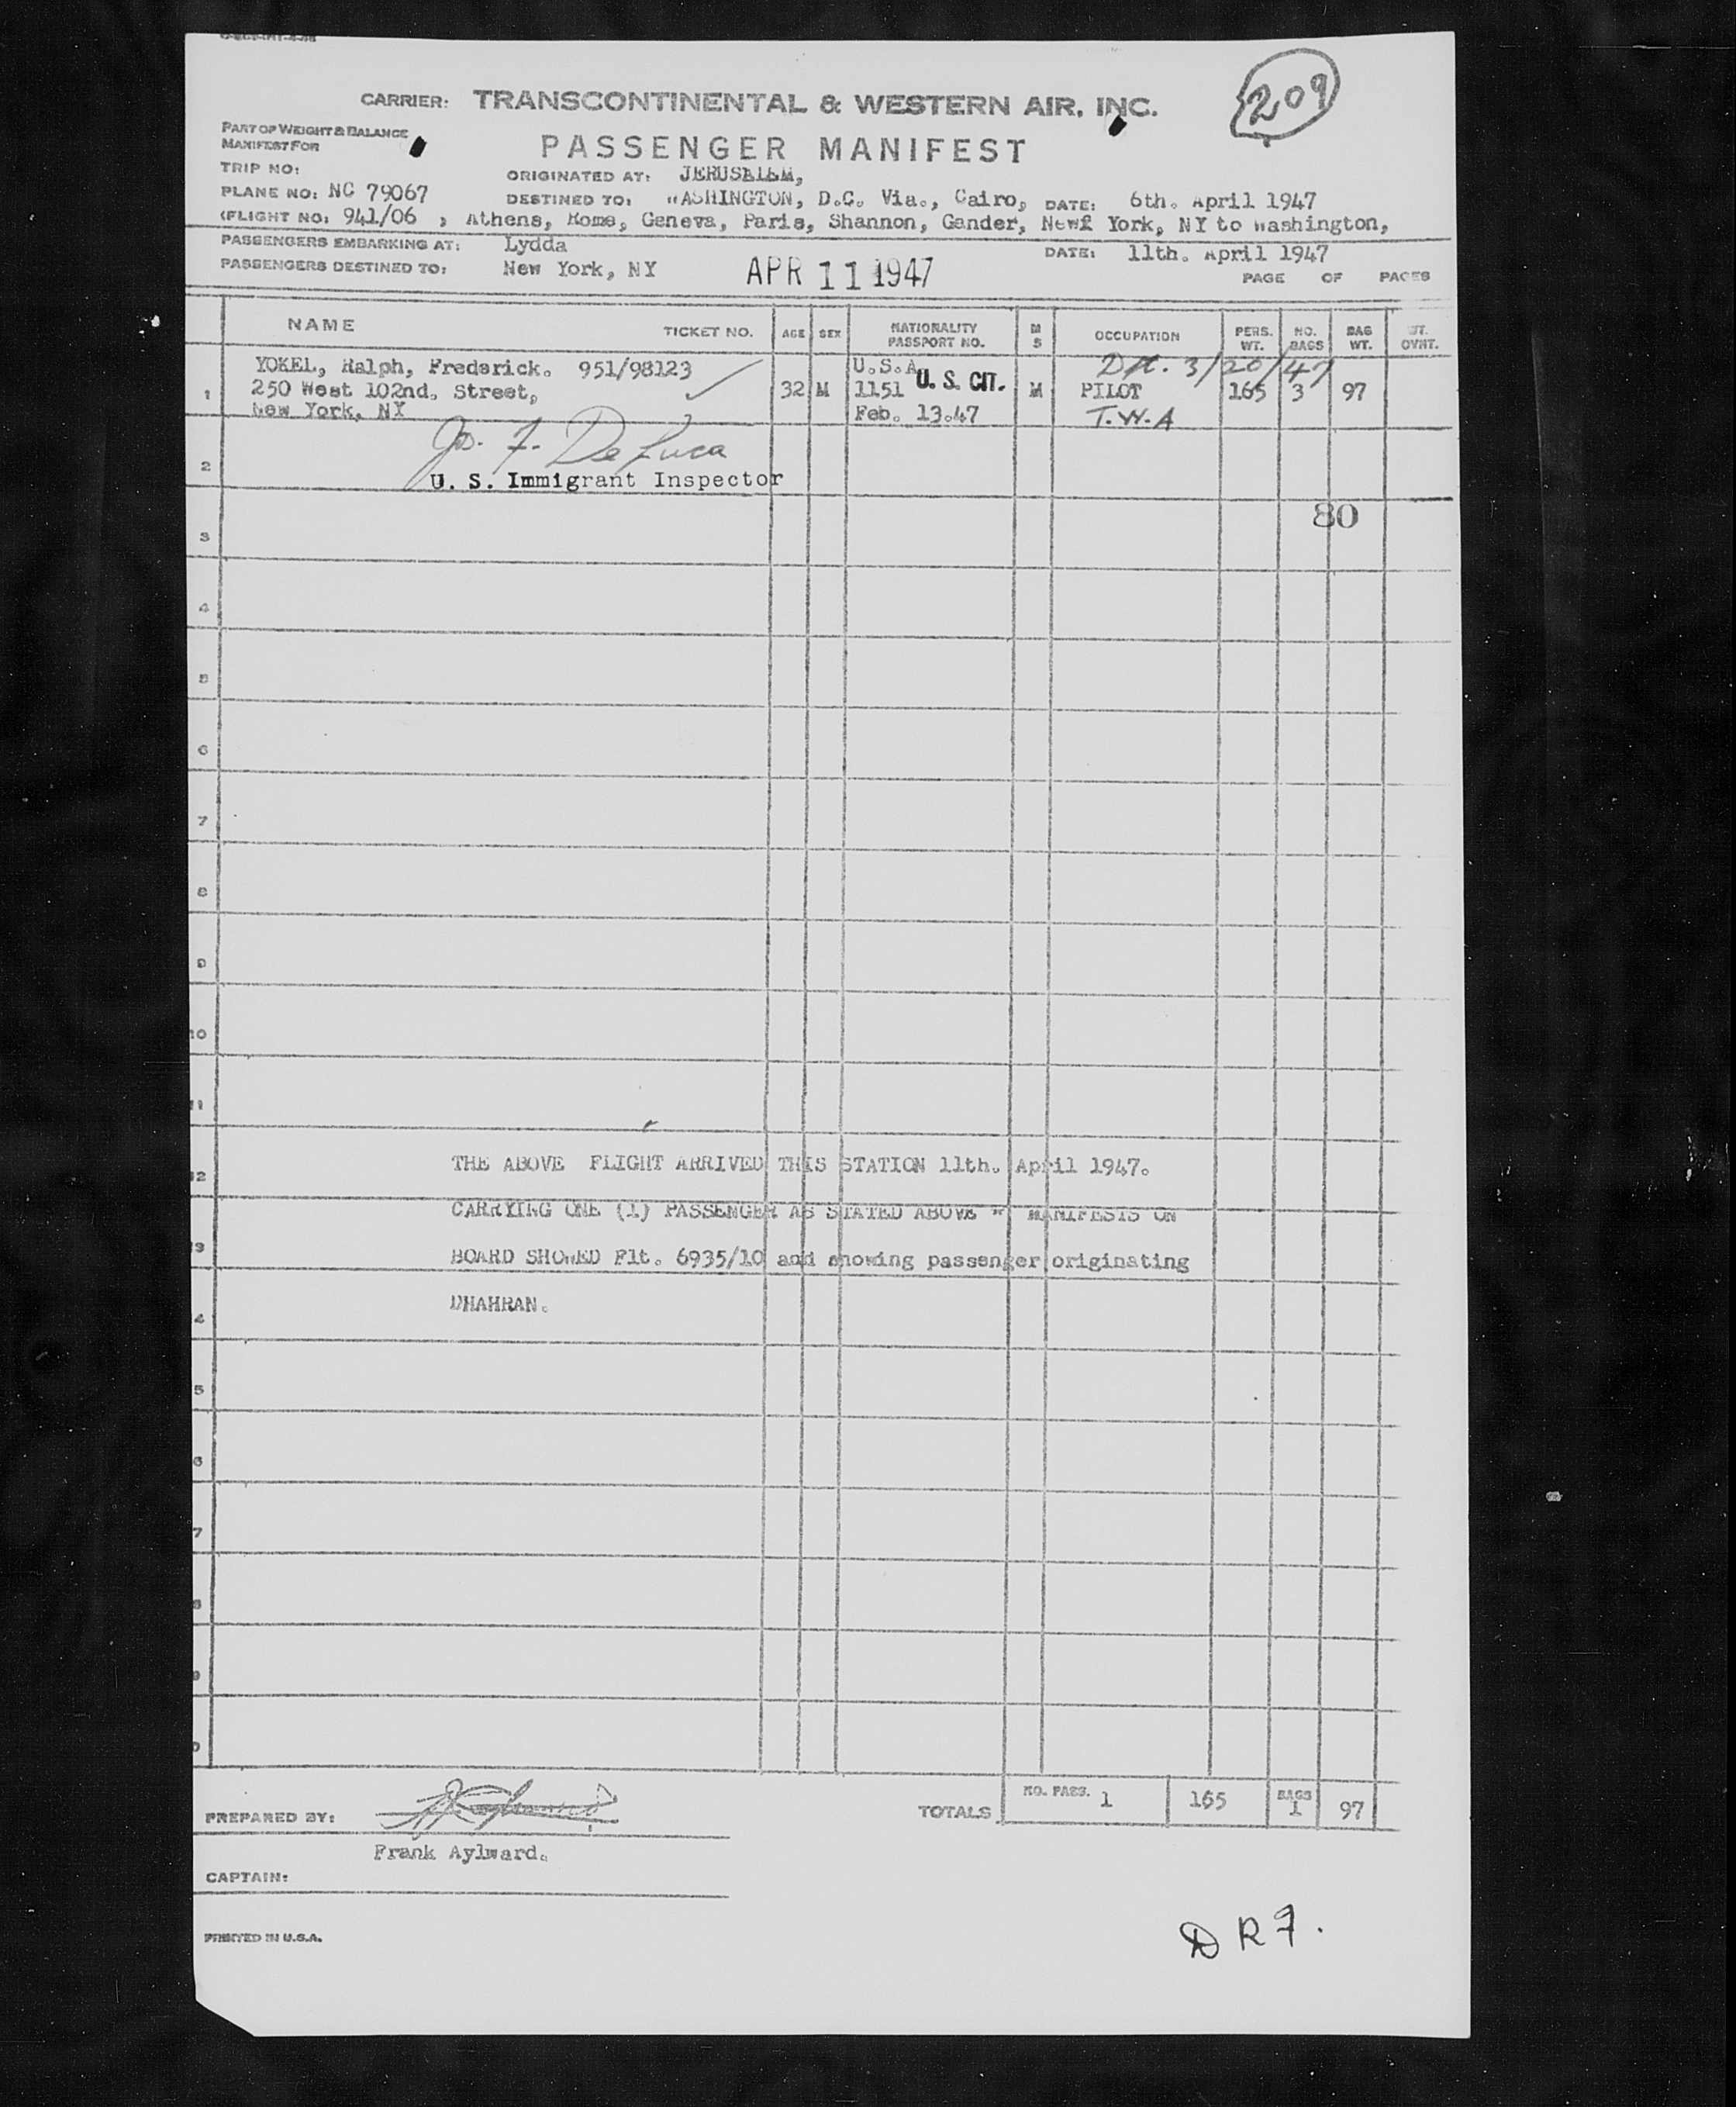 CARRIER: TRANSCONTINENTAL & WESTERN AIR, INC.
209
PART OF WEIGHT & BALANCE
MANIFEST FOR
PASSENGER MANIFEST
TRIP NO:
ORIGINATED AT: JERUSALEM,
PLANE NO: NC 79067
DESTINED TO: WASHINGTON, D.C. Via., Cairo, DATE: 6th. April 1947
(FLIGHT NO: 941/06 , Athens, Rome, Geneva, Paris, Shannon, Gander, New York, NY to Washington,
PASSENGERS EMBARKING AT: Lydda
DATE: 11th. April 1947
PASSENGERS DESTINED TO: New York, NY
APR 11 1947
PAGE OF PAGES
NAME TICKET NO. AGE SEX NATIONALITY PASSPORT NO. M S OCCUPATION PERS. WT. NO. BAGS BAG WT. WT. OVNT.
YOKEL, Ralph, Frederick. 951/98123 U.S.A. 3/20/47
1 250 West 102nd. Street, 32 M 1151 U. S. CIT. M PILOT 165 3 97
New York, NY Feb. 13.47 T.W.A
Jos. F. De Luca
2
U. S. Immigrant Inspector
80
3
4
5
6
7
8
9
10
11
THE ABOVE FLIGHT ARRIVED THIS STATION 11th. April 1947.
12
CARRYING ONE (1) PASSENGER AS STATED ABOVE " MANIFESTS ON
3
BOARD SHOWED Flt. 6935/10 and showing passenger originating
DHAHRAN.
4
5
6
7
8
9
0
TOTALS NO. PASS. 1 165 BAGS 1 97
PREPARED BY:
Frank Aylward.
CAPTAIN:
PRINTED IN U.S.A.
D R F.